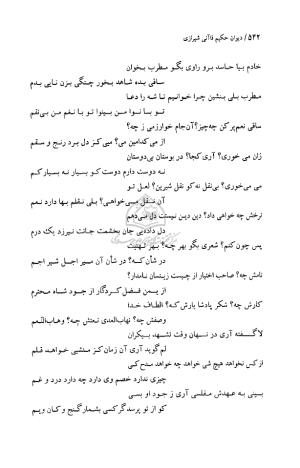 ۵۴۲/ دیوان حکیم قاآنی شیرازی
خادم بیا حاسد برو راوی بگو مطرب بخوان
ساقی بده شاهد بخور چنگی بزن نایی بدم
مطرب بلی بنشین چرا خوانیم تا شه را دعا
تو با نوا من بینوا تو با نغم من بی‌نغم
ساقی نعم پر کن چه چیز؟ آن جام خوارزمی ز چه؟
از می کدامین می؟ میی کز دل برد رنج و سقم
زان می خوری؟ آری کجا؟ در بوستان بی‌دوستان
نه دوست دارم دوست کو بسیار نه بسیار کم
می می‌خوری؟ بی‌نقل نه کو نقل شیرین؟ لعل تو
آن نقل می‌خواهی؟ بلی نقلم بها دارد نعم
نرخش چه خواهی داد؟ دین دین نیست دل می‌دهم
دل داده‌یی جان بخشمت جانت نیرزد یک درم
پس چون کنم؟ شعری بگو بهر چه؟ بهر تهنیت
در شأن که؟ در شأن آن میر اجل شیر اجم
نامش چه؟ صاحب اختیار از چیست زینسان نامدار؟
از یمن فضل کردگار از جود شاه محترم
کارش چه؟ شکر پادشا یارش که؟ الطاف خدا
وصفش چه؟ نهاب‌العدی نعتش چه؟ وهاب‌النعم
لا گفته آری در نهان وقت تشهد بیکران
لم گوید آری آن زمان کز منشی خواهد قلم
از کس نخواهد هیچ شی خواهد چه خواهد مدح کی
چیزی ندارد خصم وی دارد چه دارد درد و غم
بینی به عهدش مفلسی آری ز جود او بسی
کو از تو پرسد گر کسی بشمار گنج و کان ویم